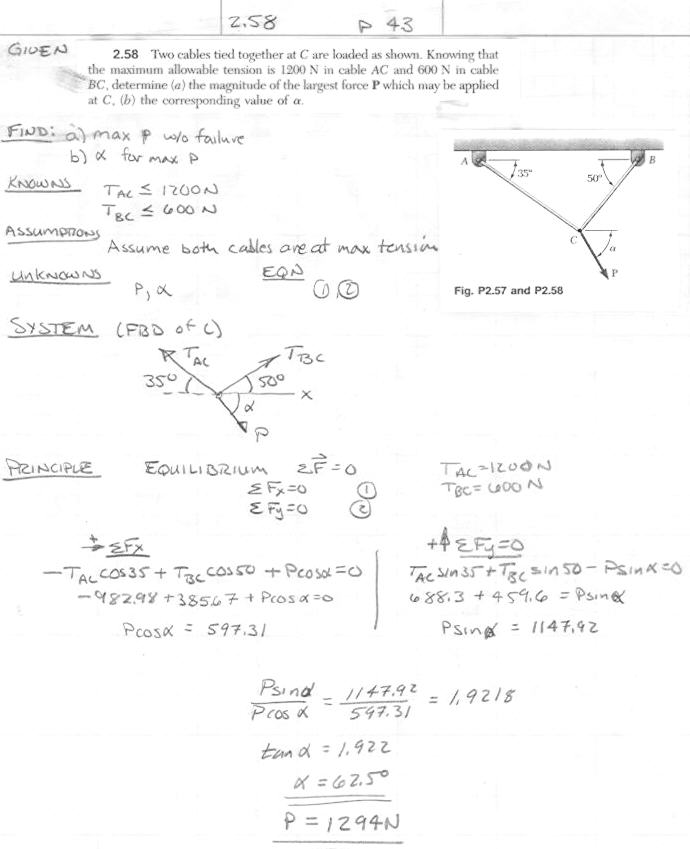 2.58 P 43
GIVEN
2.58 Two cables tied together at C are loaded as shown. Knowing that
the maximum allowable tension is 1200 N in cable AC and 600 N in cable
BC, determine (a) the magnitude of the largest force P which may be applied
at C, (b) the corresponding value of α.
FIND: a) max P w/o failure
b) α for max P
KNOWNS
T_AC ≤ 1200 N
T_BC ≤ 600 N
ASSUMPTIONS
Assume both cables are at max tension
A 35° 50° B
C α
P
Fig. P2.57 and P2.58
UNKNOWNS EQN
P, α ① ②
SYSTEM (FBD of C)
T_AC T_BC
35° 50°
x
α
P
PRINCIPLE EQUILIBRIUM ΣF⃗=0
ΣFx=0 ①
ΣFy=0 ②
T_AC=1200N
T_BC=600N
→+ ΣFx
-T_AC COS35 + T_BC COS50 + Pcosα=0
-982.98 + 385.67 + Pcosα=0
Pcosα = 597.31
+↑ ΣFy=0
T_AC SIN35 + T_BC SIN50 - Psinα=0
688.3 + 459.6 = Psinα
Psinα = 1147.92
Psinα / Pcosα = 1147.92 / 597.31 = 1.9218
tanα = 1.922
α = 62.5°
P = 1294N